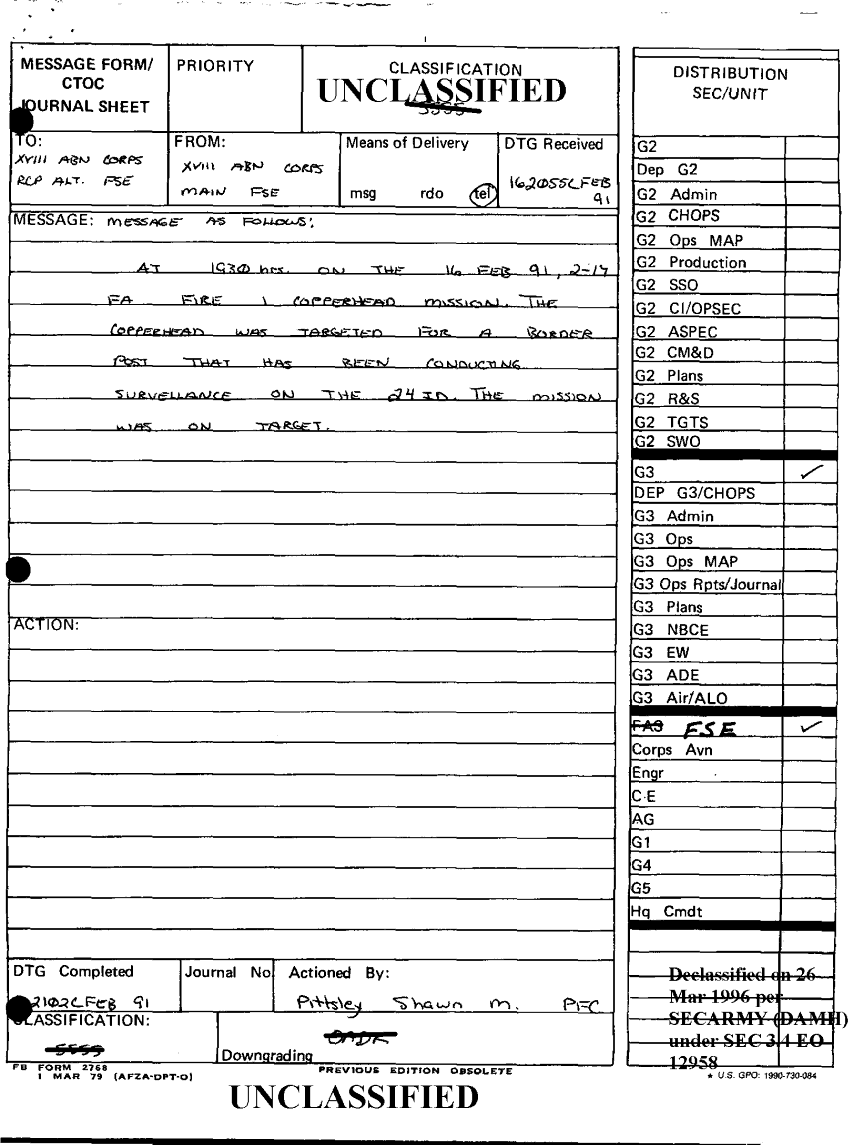 MESSAGE FORM/
CTOC
JOURNAL SHEET
PRIORITY
CLASSIFICATION
UNCLASSIFIED
TO:
XVIII ABN CORPS
RCP ALT. FSE
FROM:
XVIII ABN CORPS
MAIN FSE
Means of Delivery
msg rdo tel
DTG Received
162055CFEB
91
MESSAGE: MESSAGE AS FOLLOWS:
AT 1930 hrs. ON THE 16 FEB 91, 2-17
FA FIRE 1 COPPERHEAD MISSION. THE
COPPERHEAD WAS TARGETED FOR A BORDER
POST THAT HAS BEEN CONDUCTING
SURVELLANCE ON THE 24 ID. THE MISSION
WAS ON TARGET.
ACTION:
DTG Completed
2102CFEB 91
Journal No
Actioned By:
Pittsley Shawn M. PFC
CLASSIFICATION:
Downgrading
FB FORM 2768
1 MAR 79 (AFZA-DPT-O)
PREVIOUS EDITION OBSOLETE
UNCLASSIFIED
DISTRIBUTION
SEC/UNIT
G2
Dep G2
G2 Admin
G2 CHOPS
G2 Ops MAP
G2 Production
G2 SSO
G2 CI/OPSEC
G2 ASPEC
G2 CM&D
G2 Plans
G2 R&S
G2 TGTS
G2 SWO
G3 ✓
DEP G3/CHOPS
G3 Admin
G3 Ops
G3 Ops MAP
G3 Ops Rpts/Journal
G3 Plans
G3 NBCE
G3 EW
G3 ADE
G3 Air/ALO
FAS FSE ✓
Corps Avn
Engr
C-E
AG
G1
G4
G5
Hq Cmdt
Declassified on 26
Mar 1996 per
SECARMY (DAMH)
under SEC 3.4 EO
12958
★ U.S. GPO: 1990-730-084